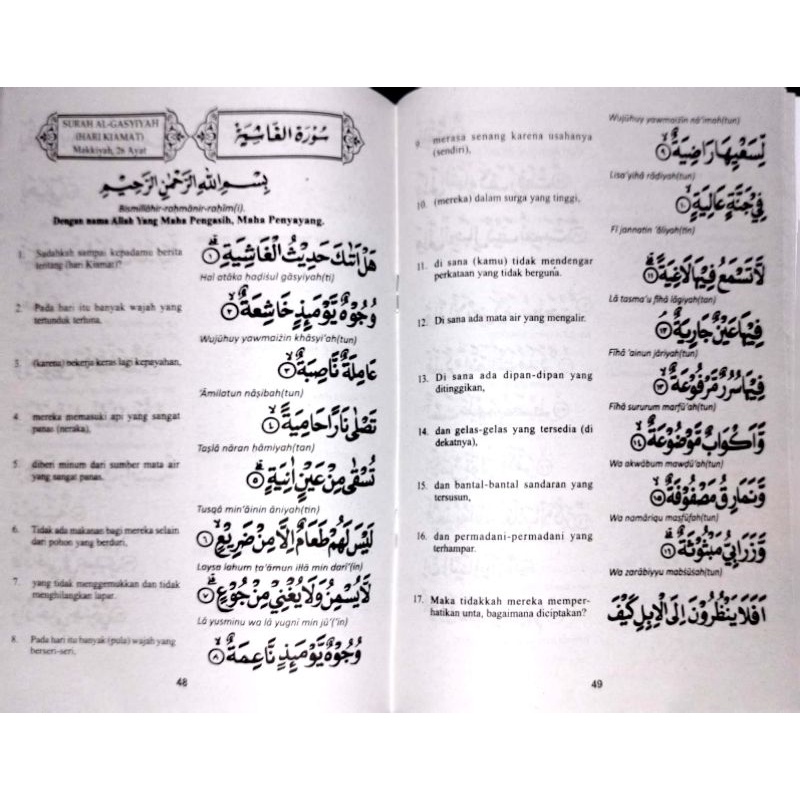 SURAH AL-GASYIYAH
(HARI KIAMAT)
Makkiyah, 26 Ayat
سُورَةُ الْغَاشِيَةِ
بِسْمِ اللّٰهِ الرَّحْمٰنِ الرَّحِيْمِ
Bismillāhir-raḥmānir-raḥīm(i).
Dengan nama Allah Yang Maha Pengasih, Maha Penyayang.
1. Sudahkah sampai kepadamu berita
tentang (hari Kiamat)?
هَلْ اَتٰىكَ حَدِيْثُ الْغَاشِيَةِۗ ١
Hal atāka ḥadīsul gāsyiyah(ti)
2. Pada hari itu banyak wajah yang
tertunduk terhina,
وُجُوْهٌ يَّوْمَىِٕذٍ خَاشِعَةٌ ۙ ٢
Wujūhuy yawmaizin khāsyi'ah(tun)
3. (karena) bekerja keras lagi kepayahan,
عَامِلَةٌ نَّاصِبَةٌ ۙ ٣
'Āmilatun nāṣibah(tun)
4. mereka memasuki api yang sangat
panas (neraka),
تَصْلٰى نَارًا حَامِيَةً ۙ ٤
Taṣlā nāran ḥāmiyah(tan)
5. diberi minum dari sumber mata air
yang sangat panas.
تُسْقٰى مِنْ عَيْنٍ اٰنِيَةٍ ۗ ٥
Tusqā min 'ainin āniyah(tin)
6. Tidak ada makanan bagi mereka selain
dari pohon yang berduri,
لَيْسَ لَهُمْ طَعَامٌ اِلَّا مِنْ ضَرِيْعٍۙ ٦
Laysa lahum ṭa'āmun illā min ḍarī'(in)
7. yang tidak menggemukkan dan tidak
menghilangkan lapar.
لَّا يُسْمِنُ وَلَا يُغْنِيْ مِنْ جُوْعٍۗ ٧
Lā yusminu wa lā yugni min jū'('in)
8. Pada hari itu banyak (pula) wajah yang
berseri-seri,
وُجُوْهٌ يَّوْمَىِٕذٍ نَّاعِمَةٌ ۙ ٨
48
Wujūhuy yawmaizin nā'imah(tun)
9. merasa senang karena usahanya
(sendiri),
لِّسَعْيِهَا رَاضِيَةٌ ۙ ٩
Lisa'yihā rāḍiyah(tun)
10. (mereka) dalam surga yang tinggi,
فِيْ جَنَّةٍ عَالِيَةٍۙ ١٠
Fī jannatin 'āliyah(tin)
11. di sana (kamu) tidak mendengar
perkataan yang tidak berguna.
لَّا تَسْمَعُ فِيْهَا لَاغِيَةً ۗ ١١
Lā tasma'u fīhā lāgiyah(tan)
12. Di sana ada mata air yang mengalir.
فِيْهَا عَيْنٌ جَارِيَةٌ ۘ ١٢
Fīhā 'ainun jāriyah(tun)
13. Di sana ada dipan-dipan yang
ditinggikan,
فِيْهَا سُرُرٌ مَّرْفُوْعَةٌ ۙ ١٣
Fīhā sururum marfū'ah(tun)
14. dan gelas-gelas yang tersedia (di
dekatnya),
وَّاَكْوَابٌ مَّوْضُوْعَةٌ ۙ ١٤
Wa akwābum mawḍū'ah(tun)
15. dan bantal-bantal sandaran yang
tersusun,
وَّنَمَارِقُ مَصْفُوْفَةٌ ۙ ١٥
Wa namāriqu maṣfūfah(tun)
16. dan permadani-permadani yang
terhampar.
وَّزَرَابِيُّ مَبْثُوْثَةٌ ۗ ١٦
Wa zarābiyyu mabsūsah(tun)
17. Maka tidakkah mereka memper-
hatikan unta, bagaimana diciptakan?
اَفَلَا يَنْظُرُوْنَ اِلَى الْاِبِلِ كَيْفَ
49